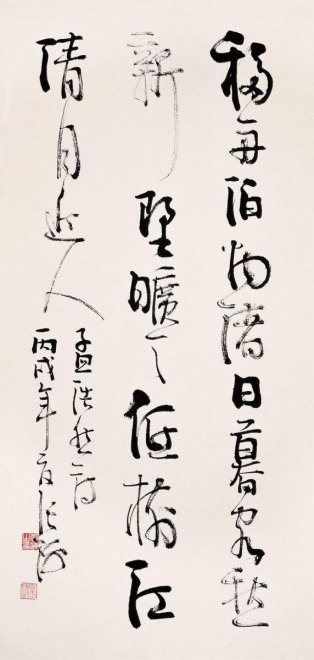 移舟泊烟渚日暮客愁
新野曠天低树江
清月近人
孟浩然诗
丙戌年